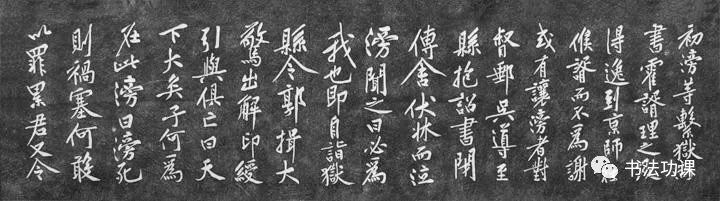 初滂等繫獄
書霍諝理之
得逸到京師
候諝而不為謝
或有讓滂者對
督郵吳導至
縣抱詔書閉
傳舍伏牀而泣
滂聞之曰必為
我也即自詣獄
縣令郭揖大
驚出解印綬
引與俱亡曰天
下大矣子何為
在此滂曰滂死
則禍塞何敢
以罪累君又令
书法功课